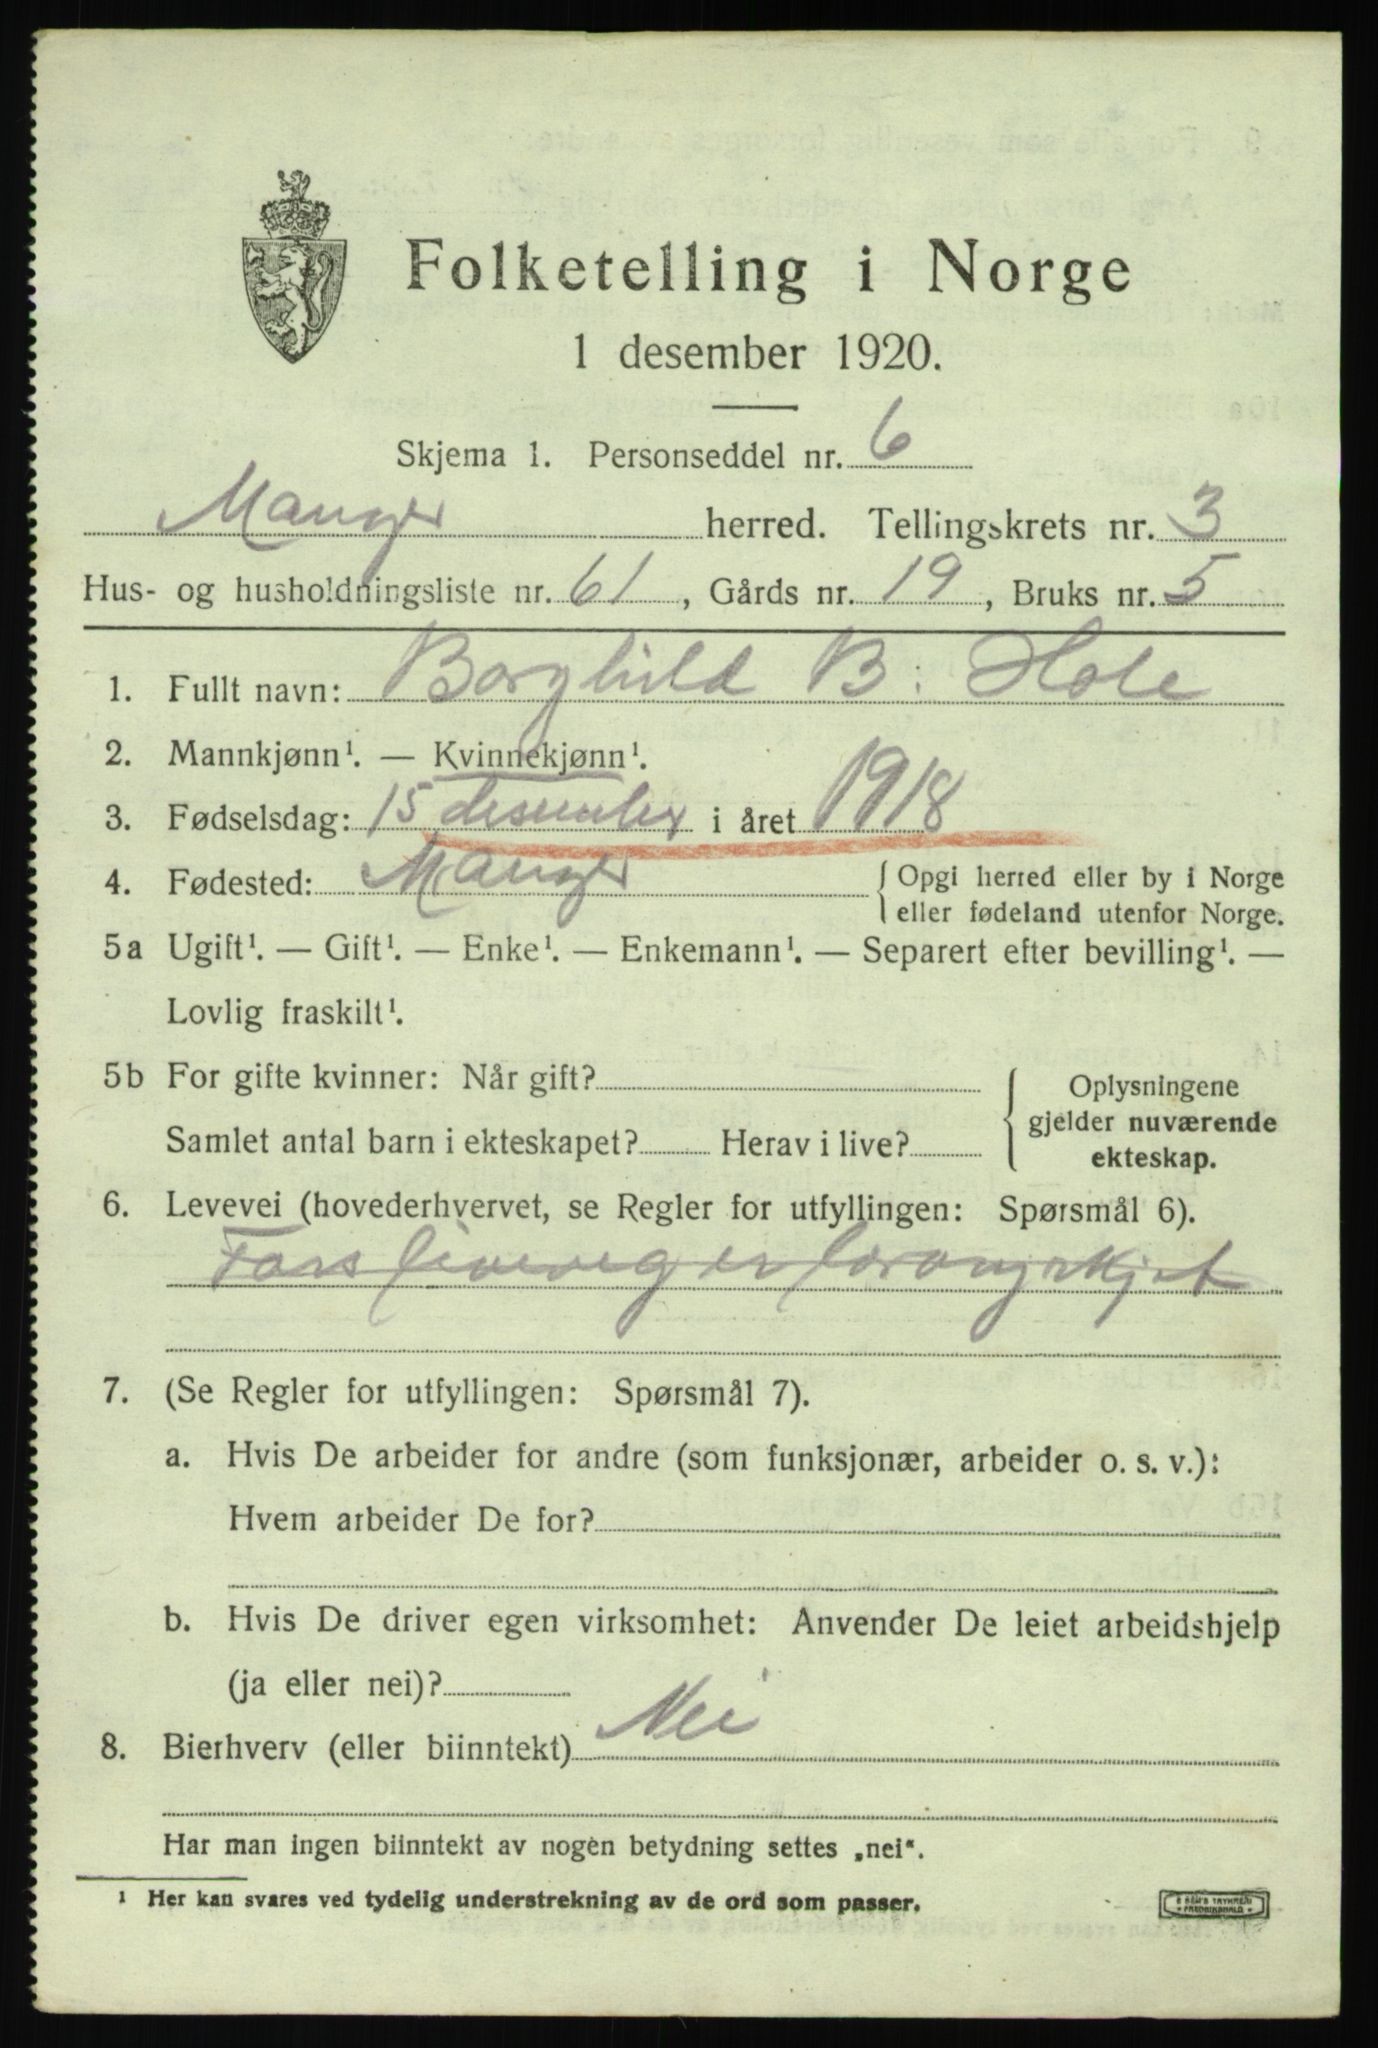 Folketelling i Norge
1 desember 1920.
Skjema 1. Personseddel nr. 6
Manger herred. Tellingskrets nr. 3
Hus- og husholdningsliste nr. 61, Gårds nr. 19, Bruks nr. 5
1. Fullt navn: Borghild B. Hole
2. Mannkjønn¹. — Kvinnekjønn¹.
3. Fødselsdag: 15 desember i året 1918
4. Fødested: Manger { Opgi herred eller by i Norge
eller fødeland utenfor Norge.
5a Ugift¹. — Gift¹. — Enke¹. — Enkemann¹. — Separert efter bevilling¹. —
Lovlig fraskilt¹.
5b For gifte kvinner: Når gift? { Oplysningene
gjelder nuværende
Samlet antal barn i ekteskapet? Herav i live?
ekteskap.
6. Levevei (hovederhvervet, se Regler for utfyllingen: Spørsmål 6).
Fars liveveg er
7. (Se Regler for utfyllingen: Spørsmål 7).
a. Hvis De arbeider for andre (som funksjonær, arbeider o. s. v.):
Hvem arbeider De for?
b. Hvis De driver egen virksomhet: Anvender De leiet arbeidshjelp
(ja eller nei)?
8. Bierhverv (eller biinntekt) Nei
Har man ingen biinntekt av nogen betydning settes „nei“.
¹ Her kan svares ved tydelig understrekning av de ord som passer.